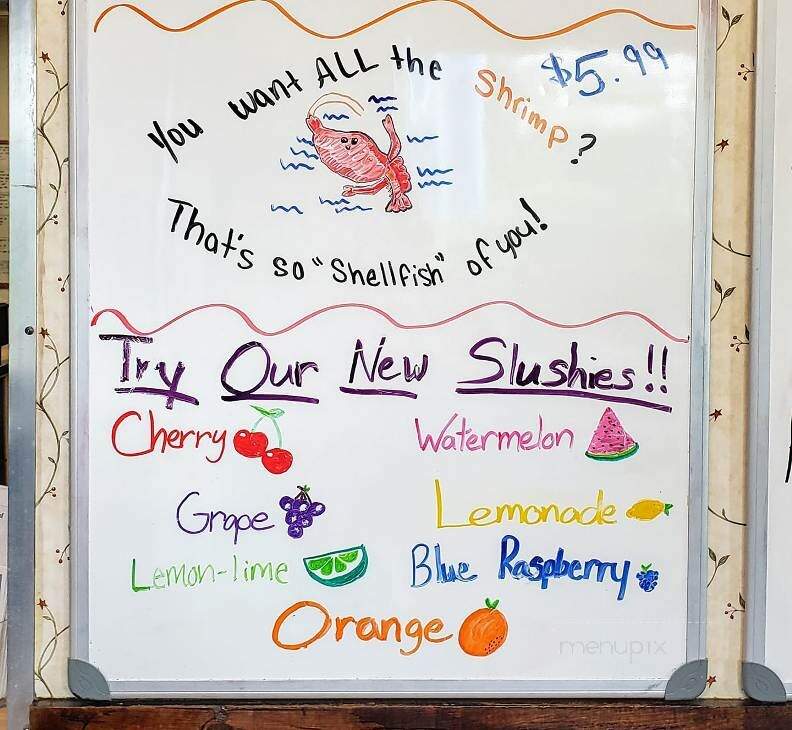 You want ALL the Shrimp?
$5.99
That's so "Shellfish" of you!
Try Our New Slushies!!
Cherry
Watermelon
Grape
Lemonade
Lemon-lime
Blue Raspberry
Orange
menupix